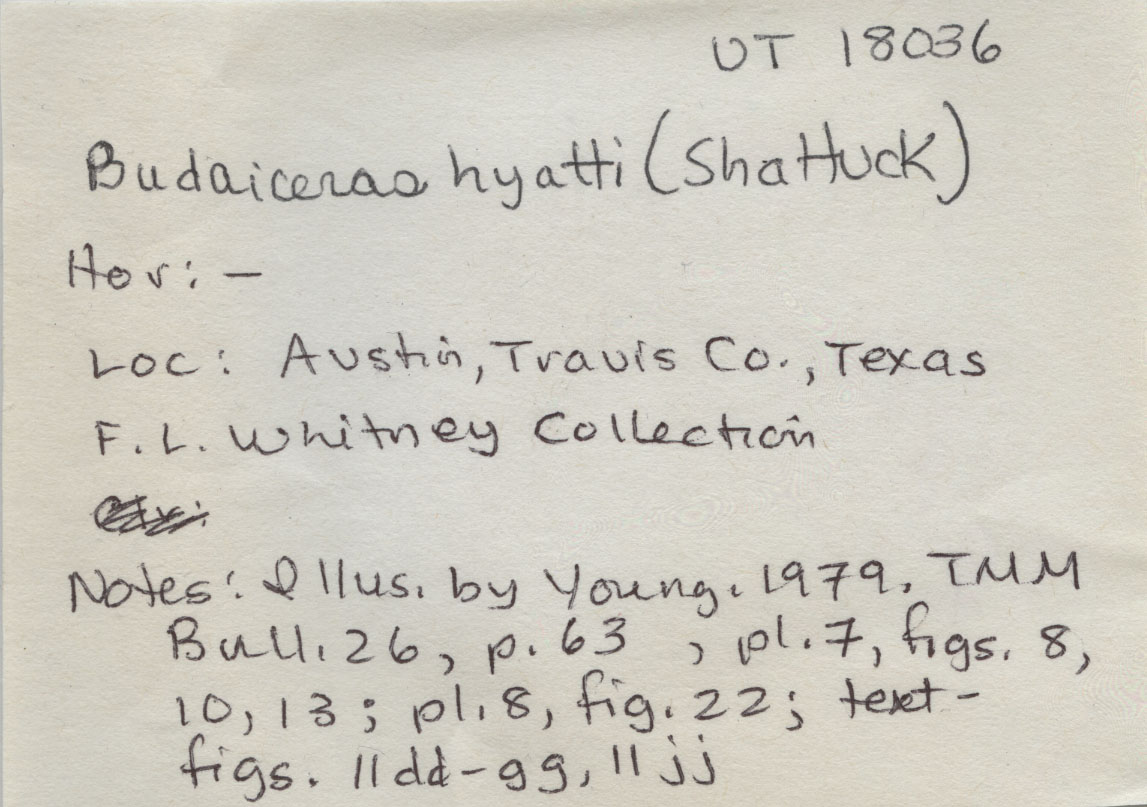 UT 18036
Budaiceras hyatti (Shattuck)
Hor: —
Loc: Austin, Travis Co., Texas
F. L. Whitney Collection
Notes: Illus. by Young. 1979. TMM
Bull. 26, p. 63 , pl. 7, figs. 8,
10, 13; pl. 8, fig. 22; text-
figs. 11dd-gg, 11jj